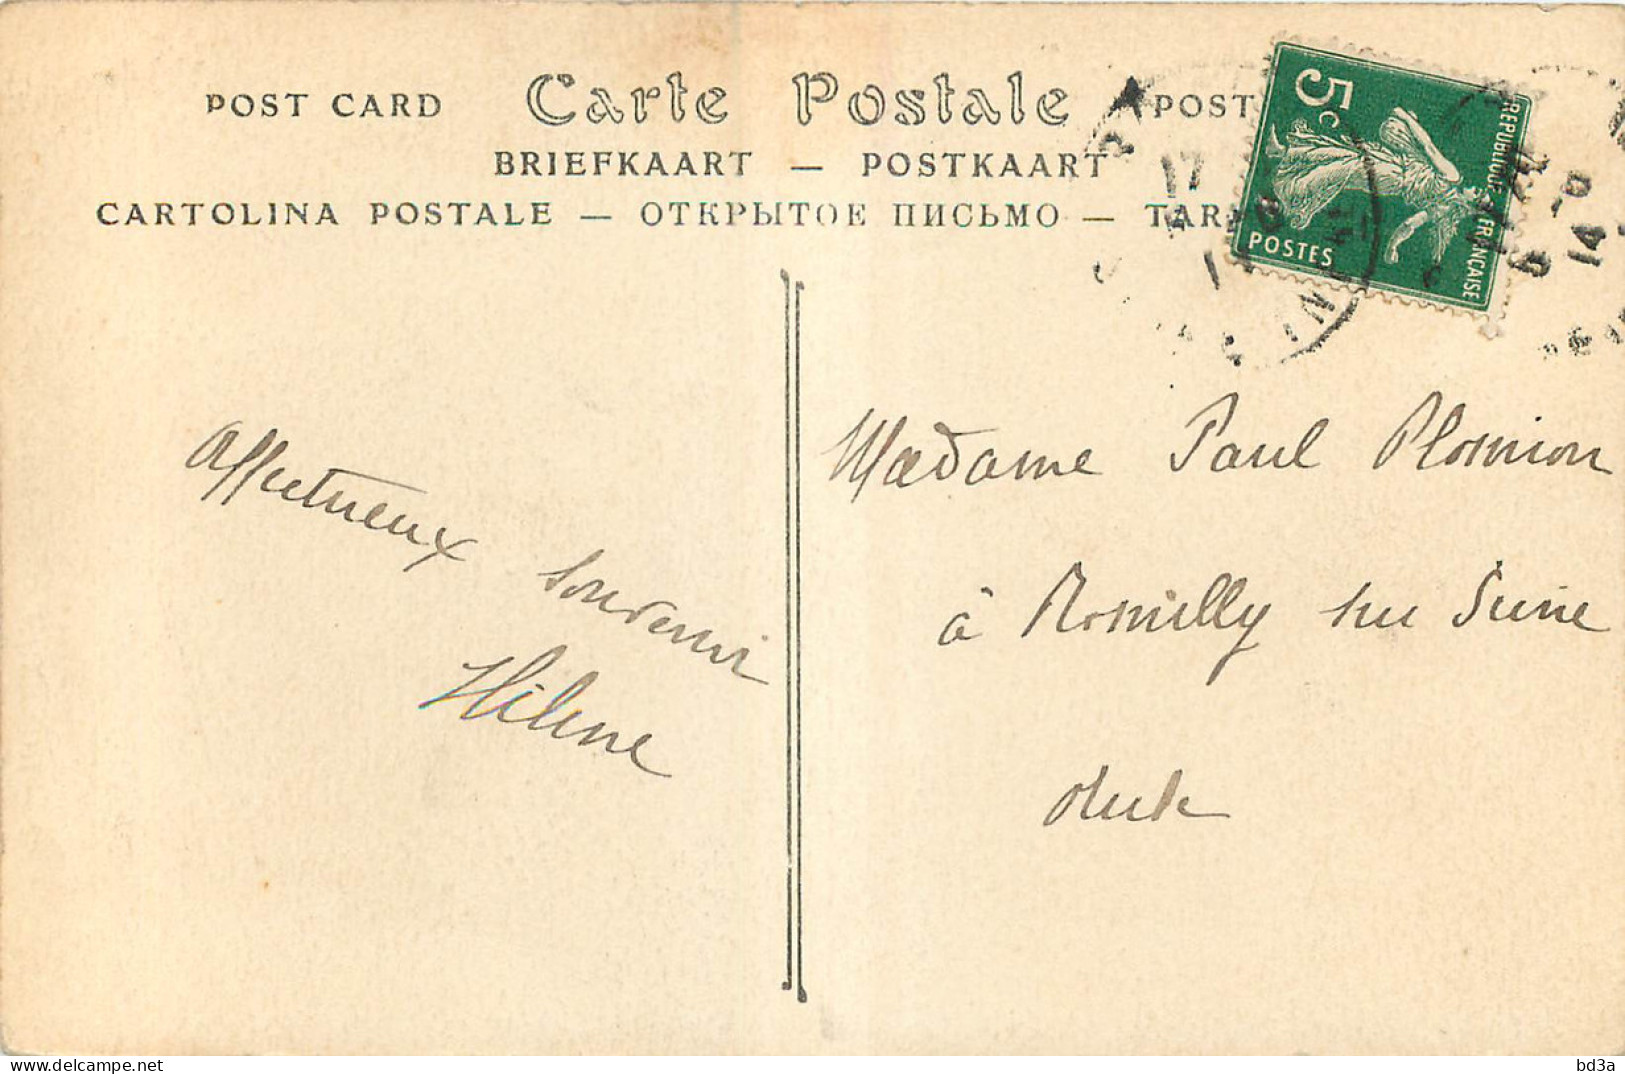 POST CARD Carte Postale POST
BRIEFKAART — POSTKAART
CARTOLINA POSTALE — ОТКРЫТОЕ ПИСЬМО — TAR
5c
REPUBLIQUE FRANÇAISE
POSTES
17
14
Affectueux
souvenir
Hélène
Madame Paul Plomion
à Romilly sur Seine
Aube
delcampe.net
bd3a